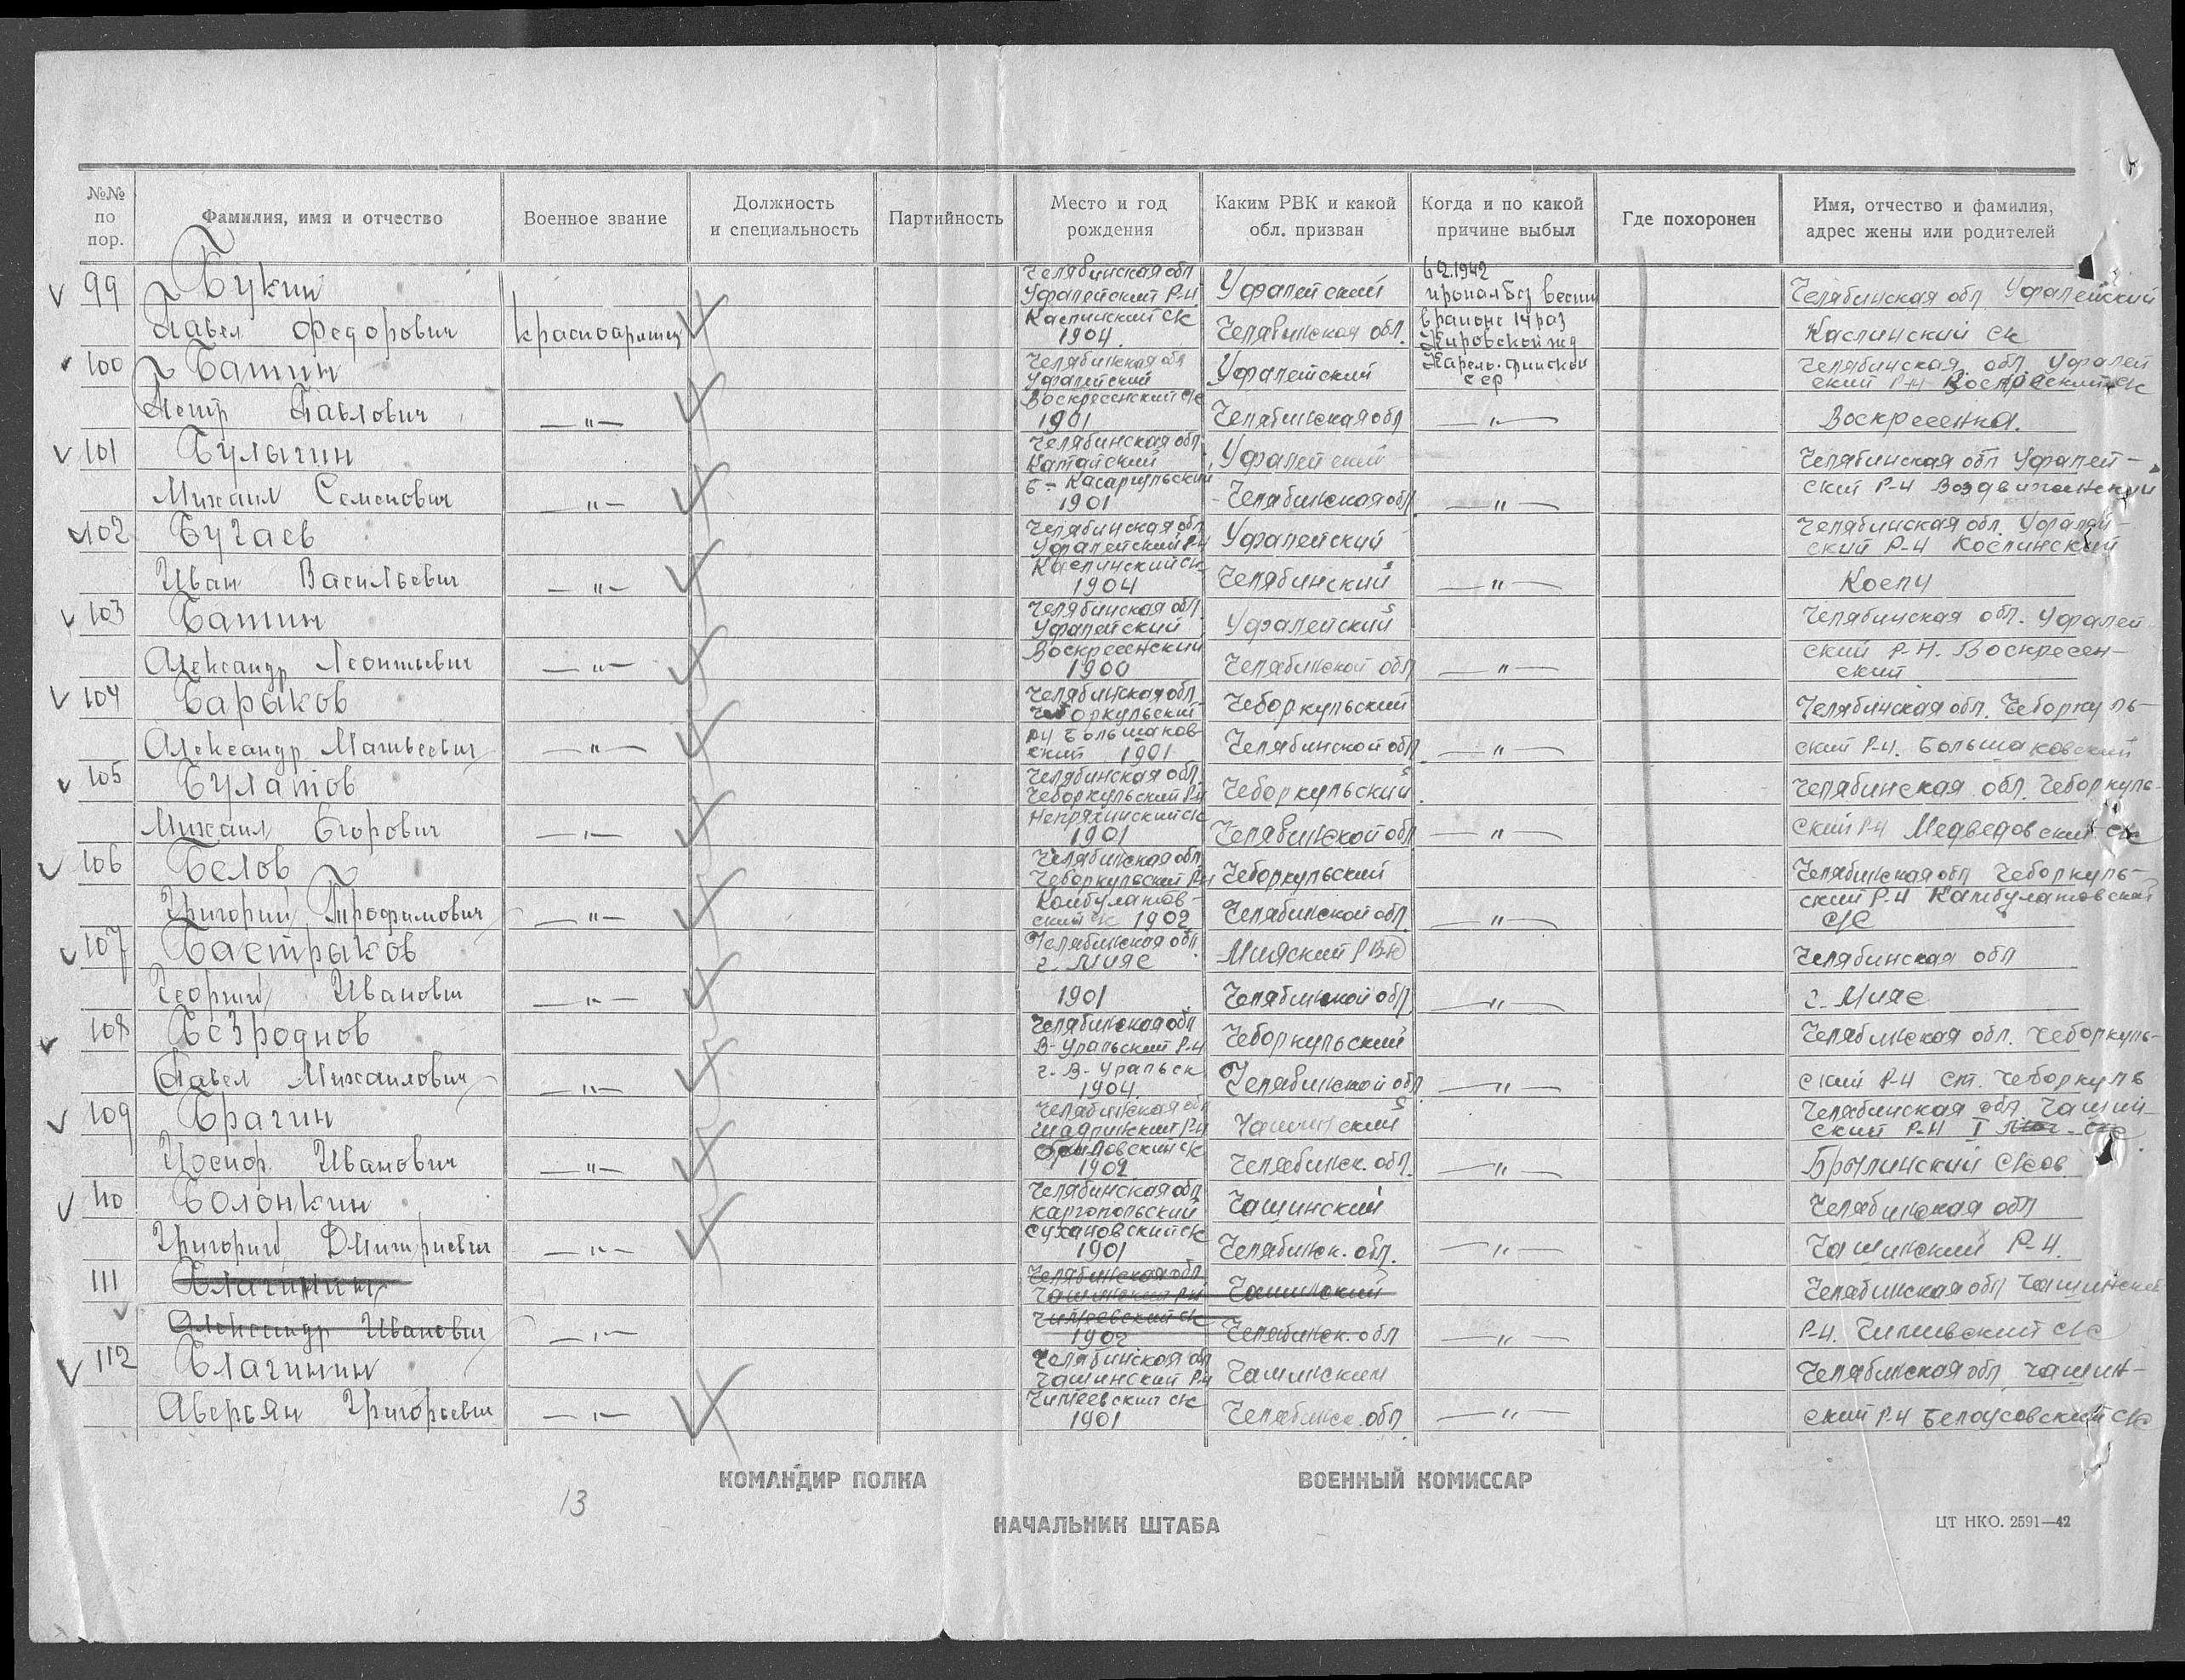 №№ по пор.
Фамилия, имя и отчество
Военное звание
Должность и специальность
Партийность
Место и год рождения
Каким РВК и какой обл. призван
Когда и по какой причине выбыл
Где похоронен
Имя, отчество и фамилия, адрес жены или родителей
99 Букин Челябинская обл Уфалейский Р-Н Уфалейский 1942 пропал без вести Челябинская обл Уфалейский
Павел Федорович красноармеец Каслинский ск 1904. Челябинская обл. в районе 14 раз Кировской жд Каслинский ск
100 Батин Челябинская обл Уфалейский Уфалейский Карело-финской сср Челябинская обл Уфалей
ский Р-Н
Петр Павлович —"— Воскресенский с/с 1901 Челябинская обл —"— Воскресенка.
101 Булыгин Челябинская обл. Катайский Уфалейский Челябинская обл Уфалей-
Михаил Семенович —"— 1901 Челябинская обл —"— ский Р-Н Воздвиженский
102 Бугаев Челябинская обл. Уфалейский Р-Н Уфалейский Челябинская обл. Уфалей-
ский Р-Н Кослинский
Иван Васильевич —"— Каслинский ск 1904 Челябинский —"— Косли
103 Батин Челябинская обл Уфалейский Уфалейский Челябинская обл. Уфалей
Александр Леонтьевич —"— Воскресенский 1900 Челябинской обл —"— ский Р-Н. Воскресен-
ский
104 Барыков Челябинская обл. Чеборкульский Чеборкульский Челябинская обл. Чеборкуль-
Александр Матвеевич —"— Р-Н Большаковский 1901 Челябинской обл —"— ский Р-Н. Большаковский
105 Булатов Челябинская обл. Чеборкульский Р-Н Чеборкульский Челябинская обл. Чеборкуль-
Михаил Егорович —"— Непряхинский ск 1901 Челябинской обл —"— ский Р-Н Медведовский с/с
106 Белов Челябинская обл Чеборкульский Р-Н Чеборкульский Челябинская обл Чеборкуль-
Григорий Трофимович —"— Конбулатов-
ский ск 1902 Челябинской обл. —"— ский Р-Н Камбулатовский
с/с
107 Бастрыков Челябинская обл. г. Мияс Мияский РВК Челябинская обл
Георгий Иванович —"— 1901 Челябинской обл —"— г. Мияс
108 Безроднов Челябинская обл В-Уральский Р-Н Чеборкульский Челябинская обл. Чеборкуль-
Павел Михаилович —"— г. В-Уральск 1904. Челябинской обл —"— ский Р-Н ст. Чеборкуль
109 Брагин Челябинская обл Шадринский Р-Н Чашинский Челябинская обл Чашин-
ский Р-Н
Иосиф Иванович —"— 1902 Челябинск. обл. —"— Брылинский
110 Болонкин Челябинская обл Каргопольский Чашинский Челябинская обл
Григорий Дмитриевич —"— Сухановский ск 1901 Челябинск. обл. —"— Чашинский Р-Н.
111 Благинин Челябинская обл. Чашинский Р-Н Чашинский Челябинская обл Чашинский
Александр Иванович —"— Читеевский ск 1902 Челябинск. обл —"— Р-Н. с/с
112 Благинин Челябинская обл Чашинский Р-Н Чашинский Челябинская обл Чашин-
Аверьян Григорьевич —"— Читеевский ск 1901 Челябинск. обл —"— ский Р-Н Белоусовский с/с
КОМАНДИР ПОЛКА
ВОЕННЫЙ КОМИССАР
13
НАЧАЛЬНИК ШТАБА
ЦТ НКО. 2591—42